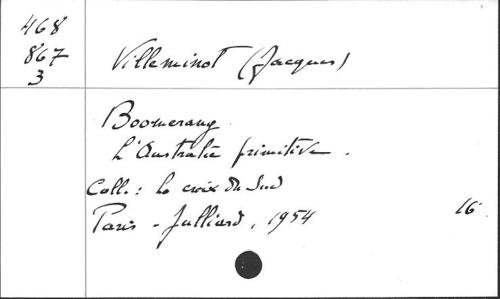 468
867
3
Villeminot (Jacques)
Boomerang
L'Australie primitive.
Coll. : La croix du Sud
Paris - Julliard, 1954
16